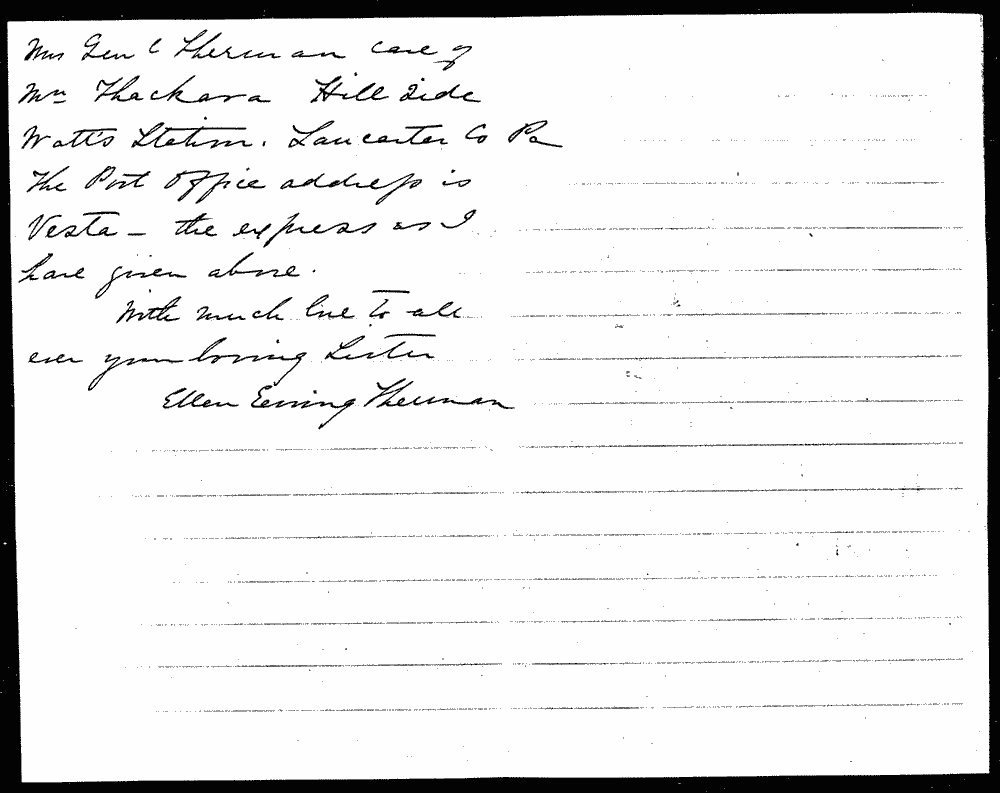 Mrs Gen C Sherman care of
Mrs Thackara Hill Side
Watt's Station. Lancaster Co Pa
The Post Office address is
Vesta – the express as I
have given above.
With much love to all
ever your loving Sister
Ellen Ewing Sherman